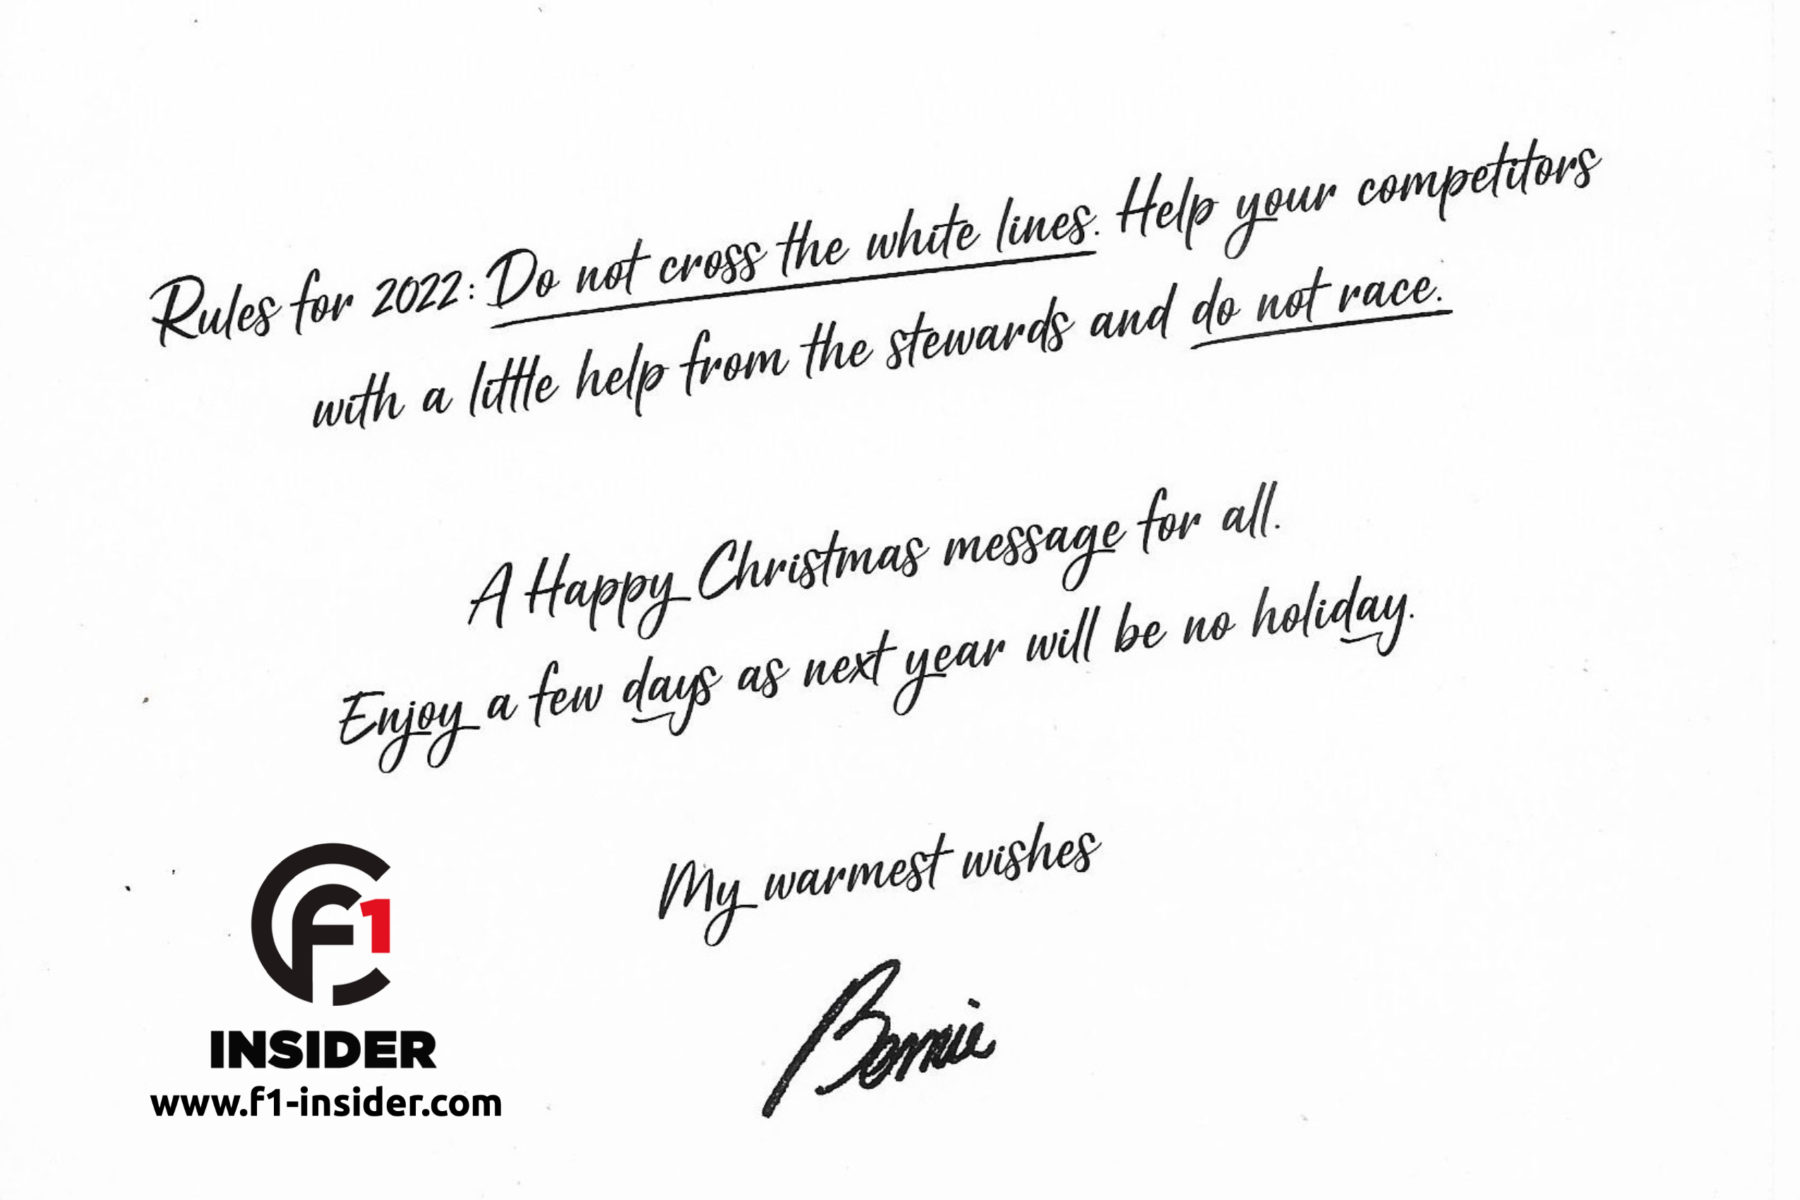 Rules for 2022: Do not cross the white lines. Help your competitors
with a little help from the stewards and do not race.
A Happy Christmas message for all.
Enjoy a few days as next year will be no holiday.
My warmest wishes
Bernie
F1
INSIDER
www.f1-insider.com